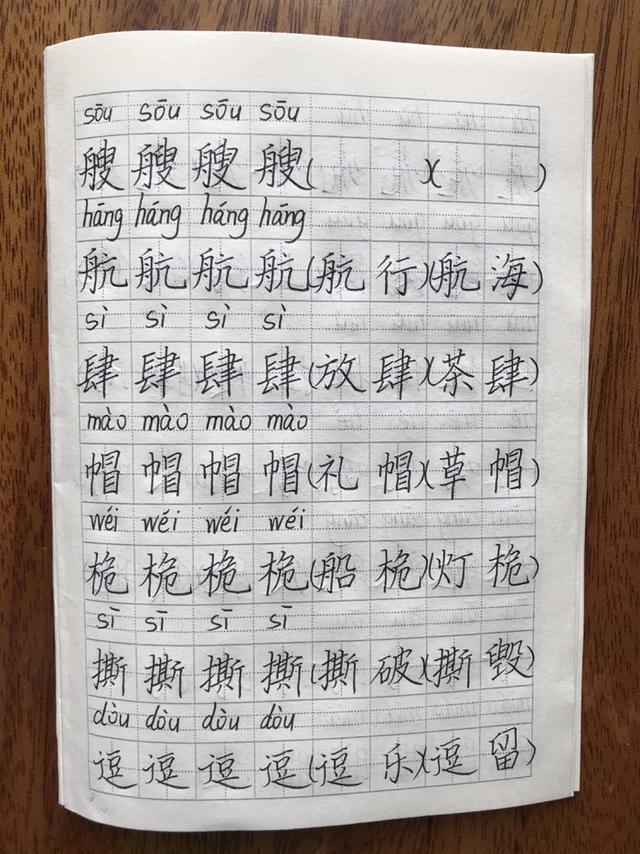 sōu sōu sōu sōu
艘 艘 艘 艘 ( )( )
háng háng háng háng
航 航 航 航 (航 行)(航 海)
sì sì sì sì
肆 肆 肆 肆 (放 肆)(茶 肆)
mào mào mào mào
帽 帽 帽 帽 (礼 帽)(草 帽)
wéi wéi wéi wéi
桅 桅 桅 桅 (船 桅)(灯 桅)
sī sī sī sī
撕 撕 撕 撕 (撕 破)(撕 毁)
dòu dòu dòu dòu
逗 逗 逗 逗 (逗 乐)(逗 留)